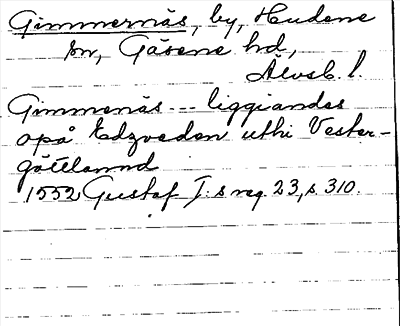 Gimmernäs, by, Hudene
sn, Gäsene hd,
Älvsb. l.
Gimmenäs --- liggiandes
opå Edzveden uthi Vester-
göttlannd
1552 Gustaf I:s reg. 23, s 310.